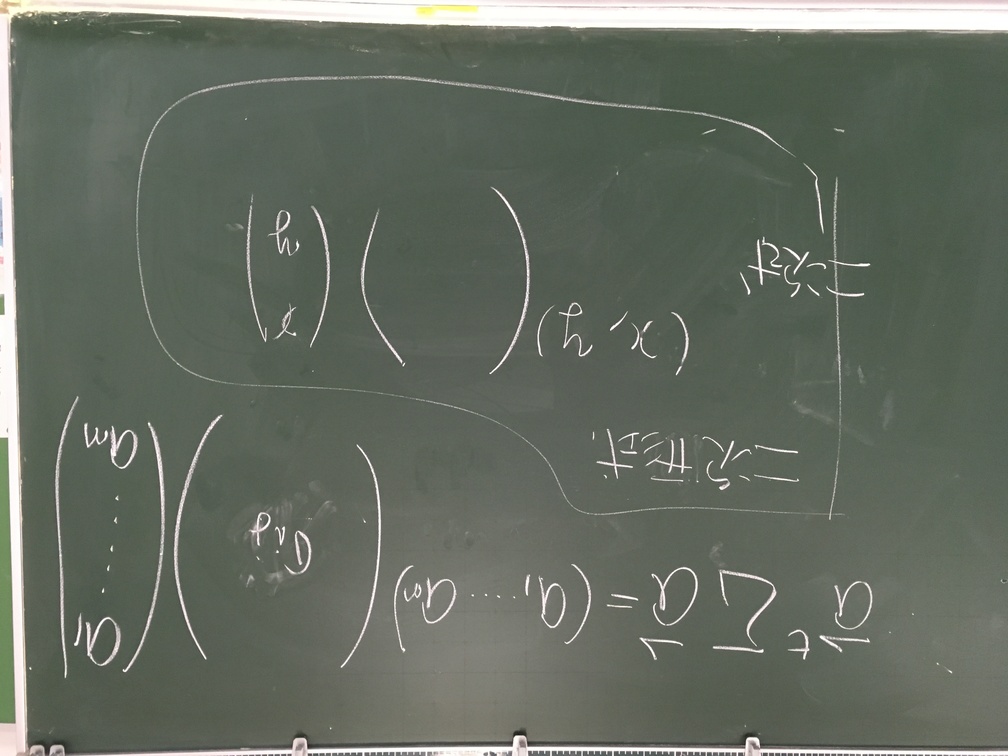 a⃗ᵗ Σ a⃗ = (a₁ ‥‥ aₙ) ( σᵢⱼ ) ( a₁ ⋮ aₙ )
二次形式.
(x, y) ( ) ( x y )
二次式